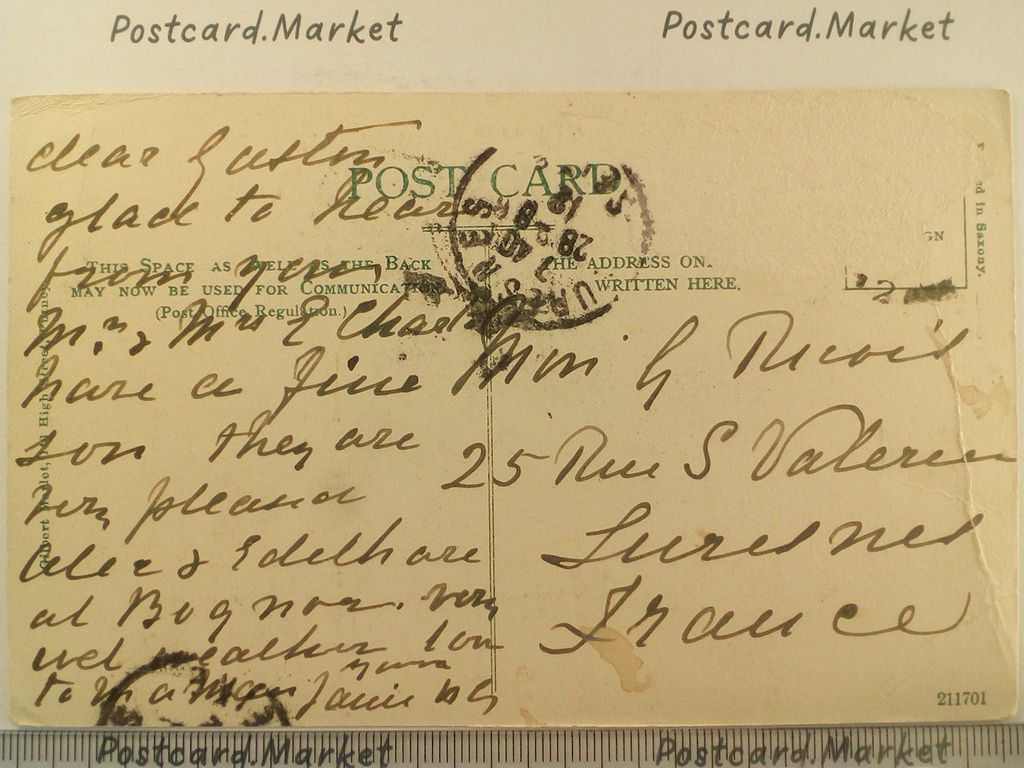 Postcard.Market Postcard.Market
POST CARD
THIS SPACE AS WELL AS THE BACK
MAY NOW BE USED FOR COMMUNICATION
(Post Office Regulation.)
THE ADDRESS ON
WRITTEN HERE.
ed in Saxony.
dear Gaston
glad to hear
from you
Mr & Mrs E Charles
have a fine
son they are
very pleased
Alec & Edelhare
at Bognor. very
wet weather love
to Maman
Mon G
25 Rue S Valerien
Suresnes
France
211701
Postcard.Market Postcard.Market